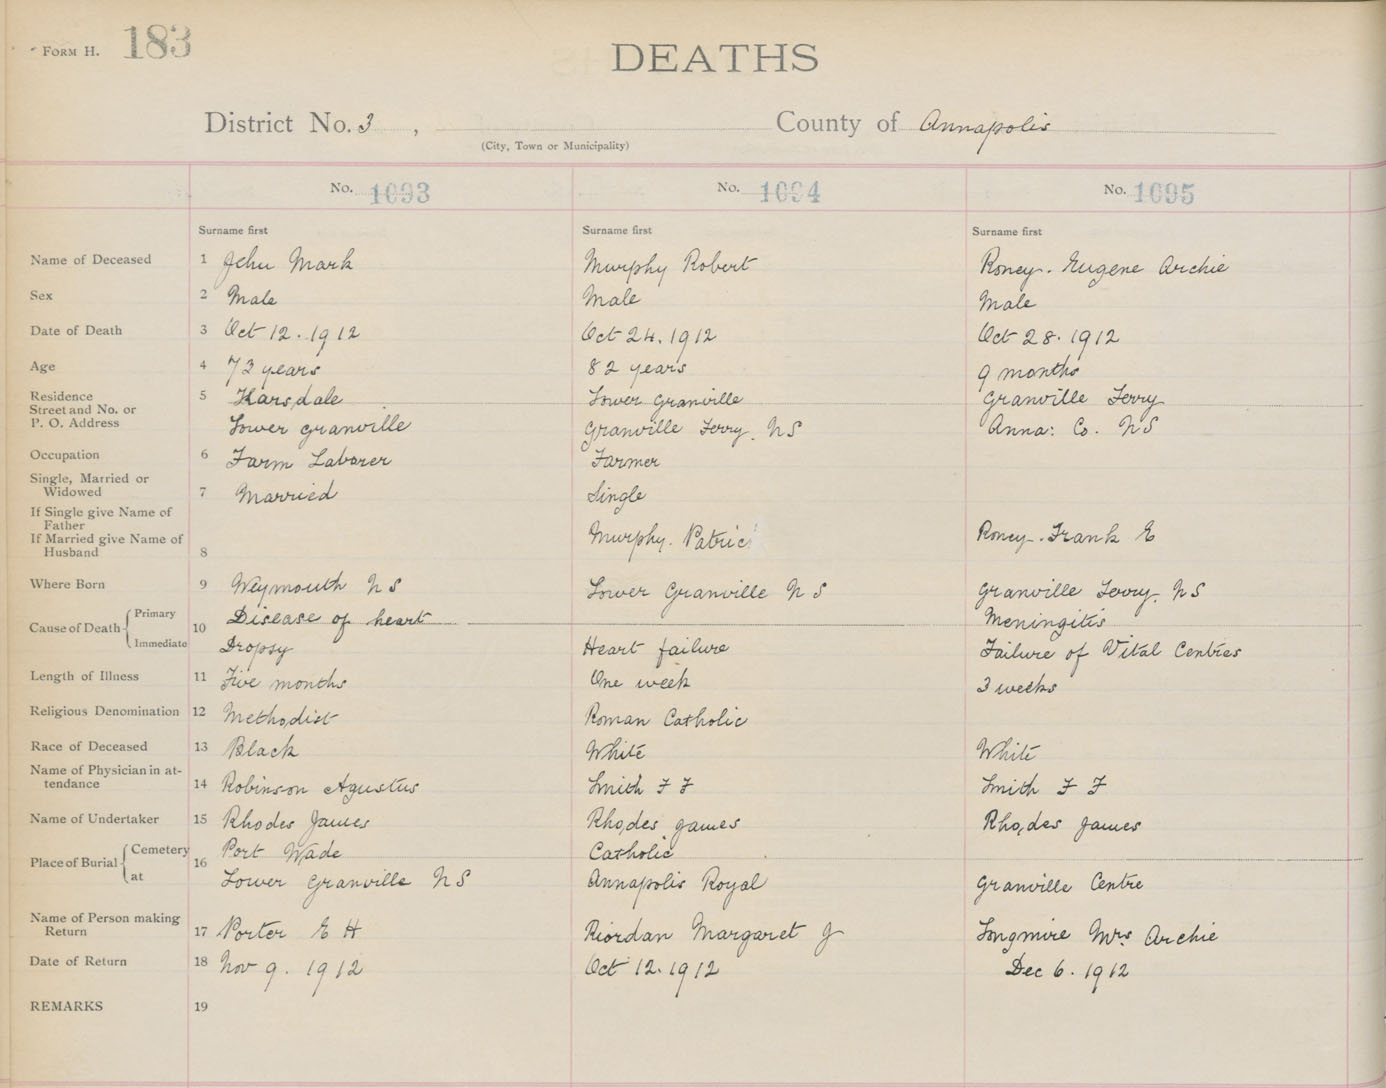 FORM H. 183
DEATHS
District No. 3 , County of Annapolis
(City, Town or Municipality)
No. 1093 No. 1094 No. 1095
Surname first Surname first Surname first
Name of Deceased 1 Jehu Mark Murphy Robert Roney. Eugene Archie
Sex 2 Male Male Male
Date of Death 3 Oct 12. 1912 Oct 24. 1912 Oct 28. 1912
Age 4 73 years 82 years 9 months
Residence 5 Karsdale Lower Granville Granville Ferry
Street and No. or
P. O. Address Lower Granville Granville Ferry. NS Anna: Co. NS
Occupation 6 Farm Laborer Farmer
Single, Married or
Widowed 7 Married Single
If Single give Name of
Father
If Married give Name of
Husband 8 Murphy. Patric Roney. Frank E
Where Born 9 Weymouth NS Lower Granville NS Granville Ferry. NS
Cause of Death 10
Primary Disease of heart Meningitis
Immediate Dropsy Heart failure Failure of Vital Centres
Length of Illness 11 Five months One week 3 weeks
Religious Denomination 12 Methodist Roman Catholic
Race of Deceased 13 Black White White
Name of Physician in at-
tendance 14 Robinson Agustus Smith F F Smith F F
Name of Undertaker 15 Rhodes James Rhodes James Rhodes James
Place of Burial 16
Cemetery Port Wade Catholic
at Lower Granville NS Annapolis Royal Granville Centre
Name of Person making
Return 17 Porter E H Riordan Margaret J Longmire Mrs Archie
Date of Return 18 Nov 9. 1912 Oct 12. 1912 Dec 6. 1912
REMARKS 19